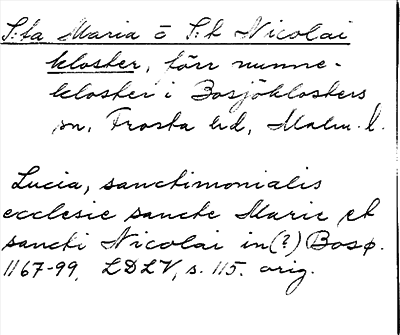 S:ta Maria o S:t Nicolai
kloster, förr nunne-
kloster i Bosjöklosters
sn, Frosta hd, Malm. l.
Lucia, sanctimonialis
ecclesie sancte Marie et
sancti Nicolai in(?) Bosø.
1167-99, LDLV, s. 115. orig.